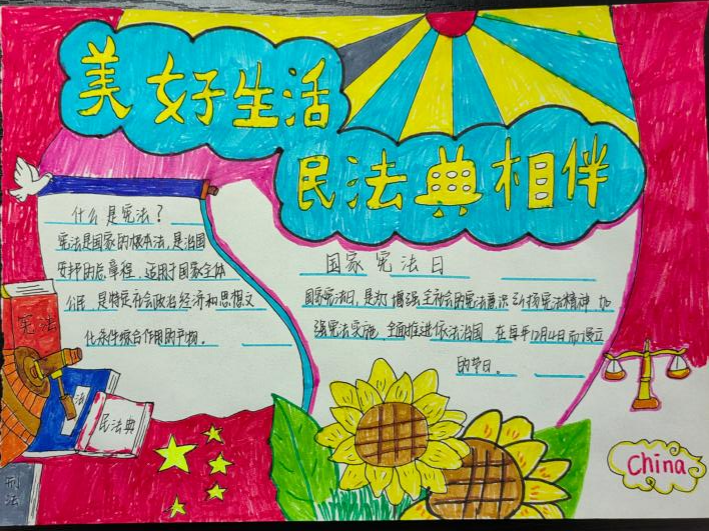 美好生活
民法典相伴
什么是宪法？
宪法是国家的根本法,是治国
安邦的总章程,适用于国家全体
公民,是特定社会政治经济和思想文
化条件综合作用的产物。
国家宪法日
国家宪法日,是为增强全社会的宪法意识弘扬宪法精神,加
强宪法实施,全面推进依法治国,在每年12月4日而设立
的节日。
宪法
法
民法典
刑法
China